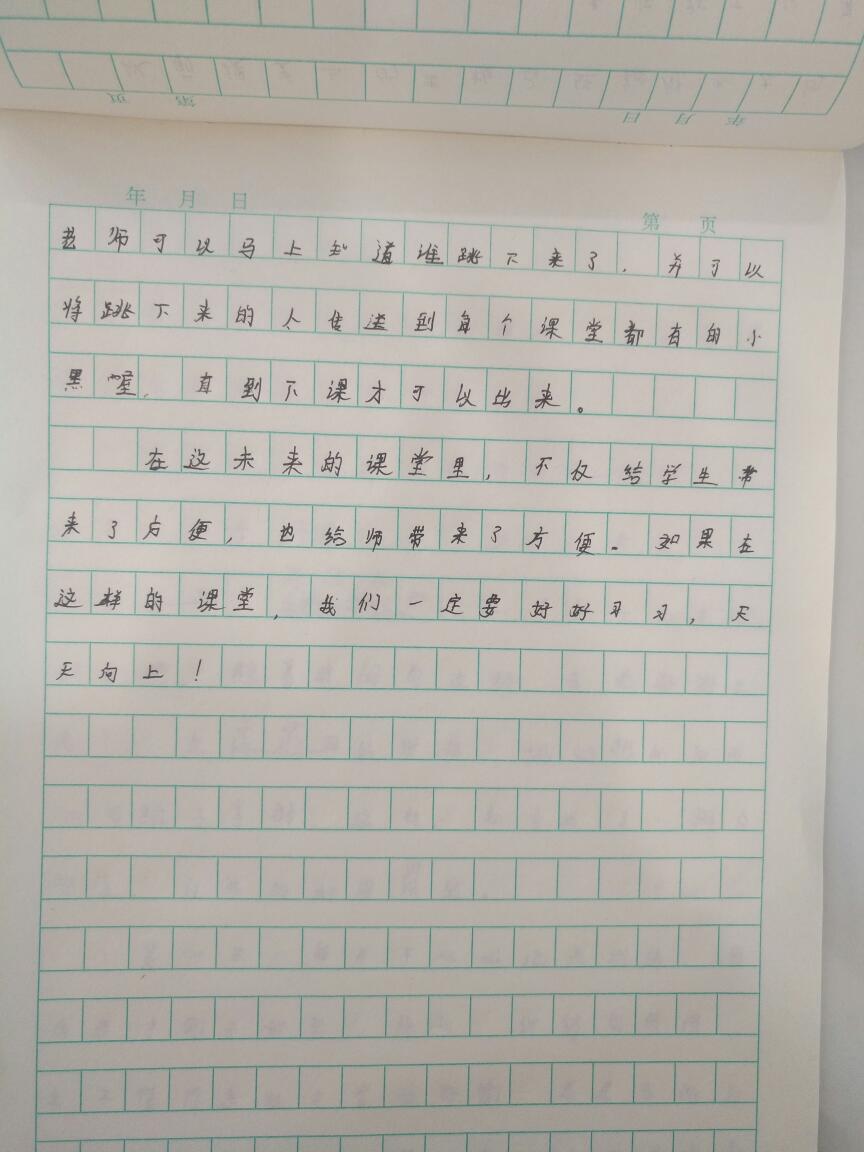 年 月 日
第 页
老师可以马上知道谁跳下来了，并可以
将跳下来的人传送到每个课堂都有的小
黑喔，直到下课才可以出来。
在这未来的课堂里，不仅给学生带
来了方便，也给师带来了方便。如果在
这样的课堂，我们一定要好好习习，天
天向上！